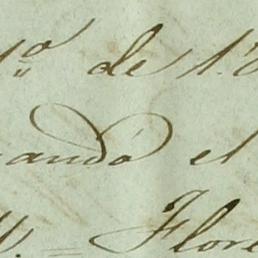 1.º de 1.8
ando el
= Flore